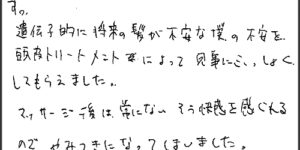 す。
遺伝子的に将来の髪が不安な僕の不安を
頭皮トリートメントによって見事にふっしょく
してもらえました。
マッサージ後は常にない そう快感を感ぐれる
のでやみつきになってしまいました。